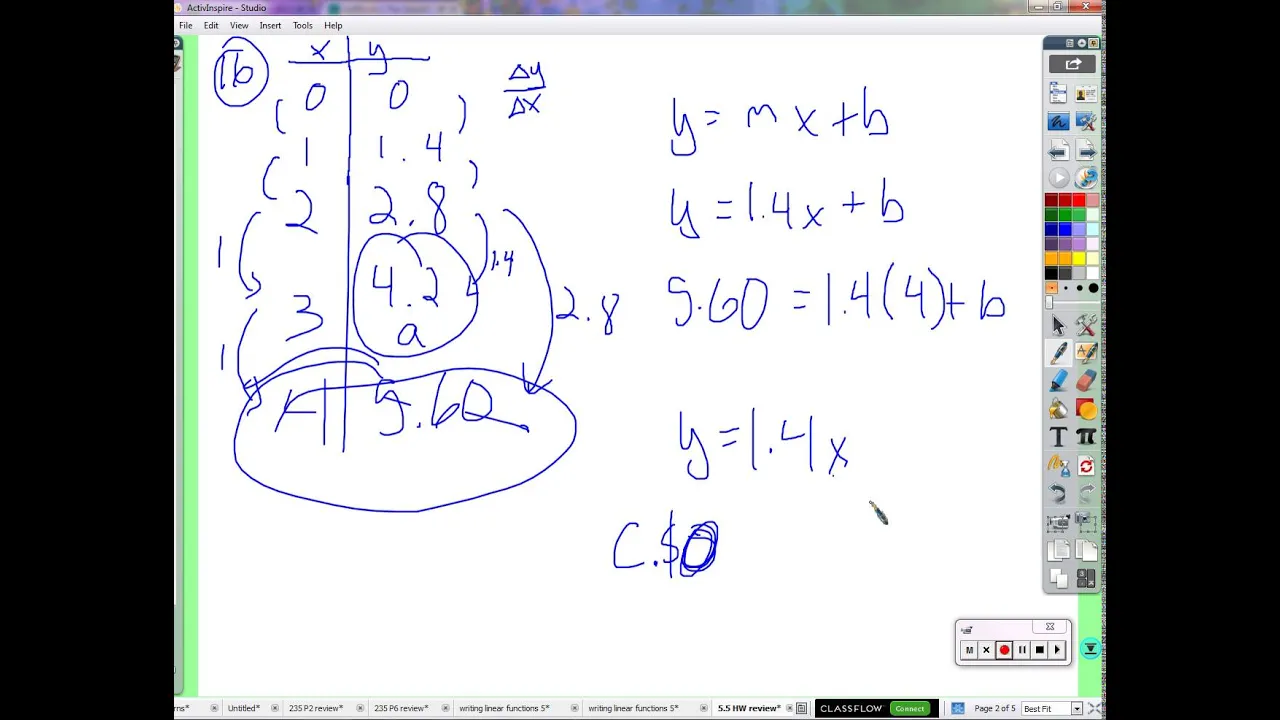 ActivInspire - Studio
File Edit View Insert Tools Help
16
x y
0 0
1 1.4
2 2.8
3 4.2
a
4 5.60
Δy
Δx
1
1
1.4
2.8
y = mx + b
y = 1.4x + b
5.60 = 1.4(4) + b
y = 1.4x
C. $0
M
Untitled* 235 P2 review* 235 P6 review* writing linear functions 5* writing linear functions 5* 5.5 HW review* CLASSFLOW Connect Page 2 of 5 Best Fit